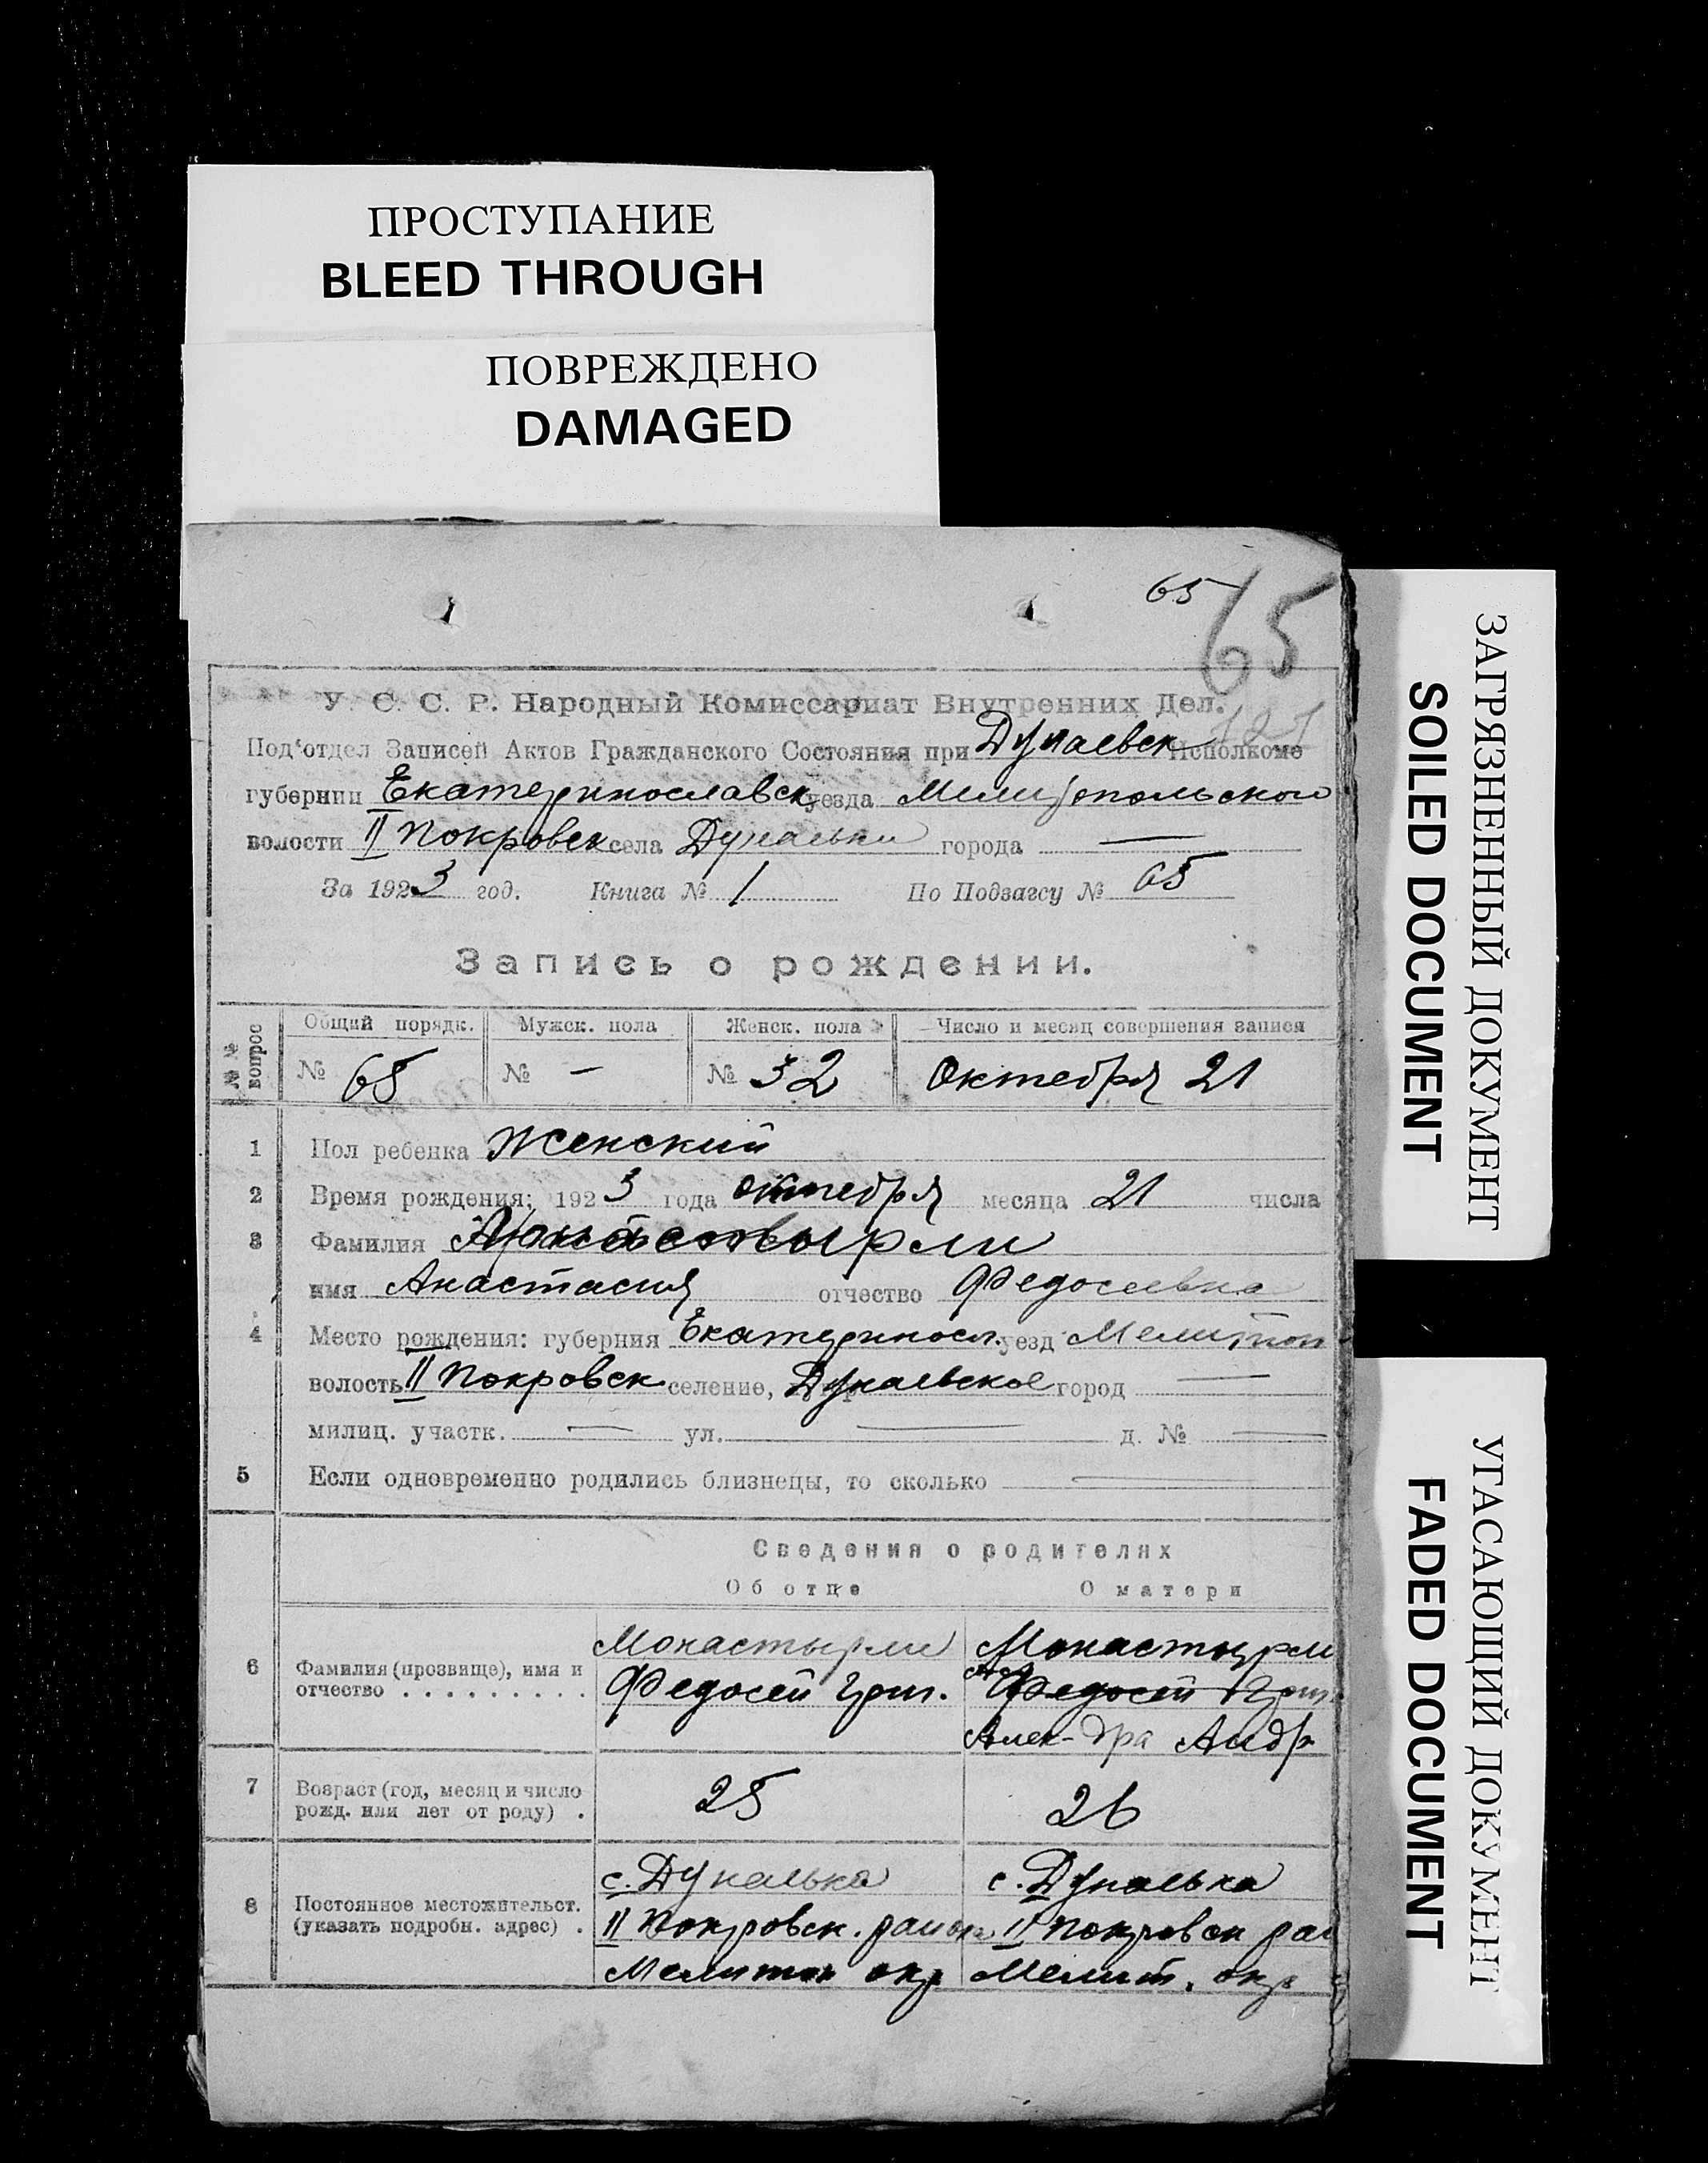 ПРОСТУПАНИЕ
BLEED THROUGH
ПОВРЕЖДЕНО
DAMAGED
65
65
У. С. С. Р. Народный Комиссариат Внутренних Дел.
Под'отдел Записей Актов Гражданского Состояния при Дунаевск Исполкоме
губернии Екатеринославск уезда Мелитопольской
волости II Покровск села Дунаевки города —
За 1923 год. Книга № 1 По Подзагсу № 65
Запись о рождении.
№№ вопрос
Общий порядк. Мужск. пола Женск. пола Число и месяц совершения записи
№ 65 № — № 32 Октября 21
1 Пол ребенка Женский
2 Время рождения: 1923 года октября месяца 21 числа
3 Фамилия
имя Анастасия отчество Федосеевна
4 Место рождения: губерния Екатериносл. уезд Мелитоп
волость II Покровск селение, Дунаевское город —
милиц. участк. — ул. — д. № —
5 Если одновременно родились близнецы, то сколько —
Сведения о родителях
Об отце О матери
Монастырли Монастырли
6 Фамилия (прозвище), имя и
отчество . . . . . . . . . Федосей Григ. Федосей Григ.
Алек-дра Андр
7 Возраст (год, месяц и число
рожд. или лет от роду) . 25 26
с. Дунаевка с. Дунаевка
8 Постоянное местожительст.
(указать подробн. адрес) . II Покровск. района II Покровск рай
Мелитоп окр Мелит. окр
ЗАГРЯЗНЕННЫЙ ДОКУМЕНТ
SOILED DOCUMENT
УГАСАЮЩИЙ ДОКУМЕНТ
FADED DOCUMENT